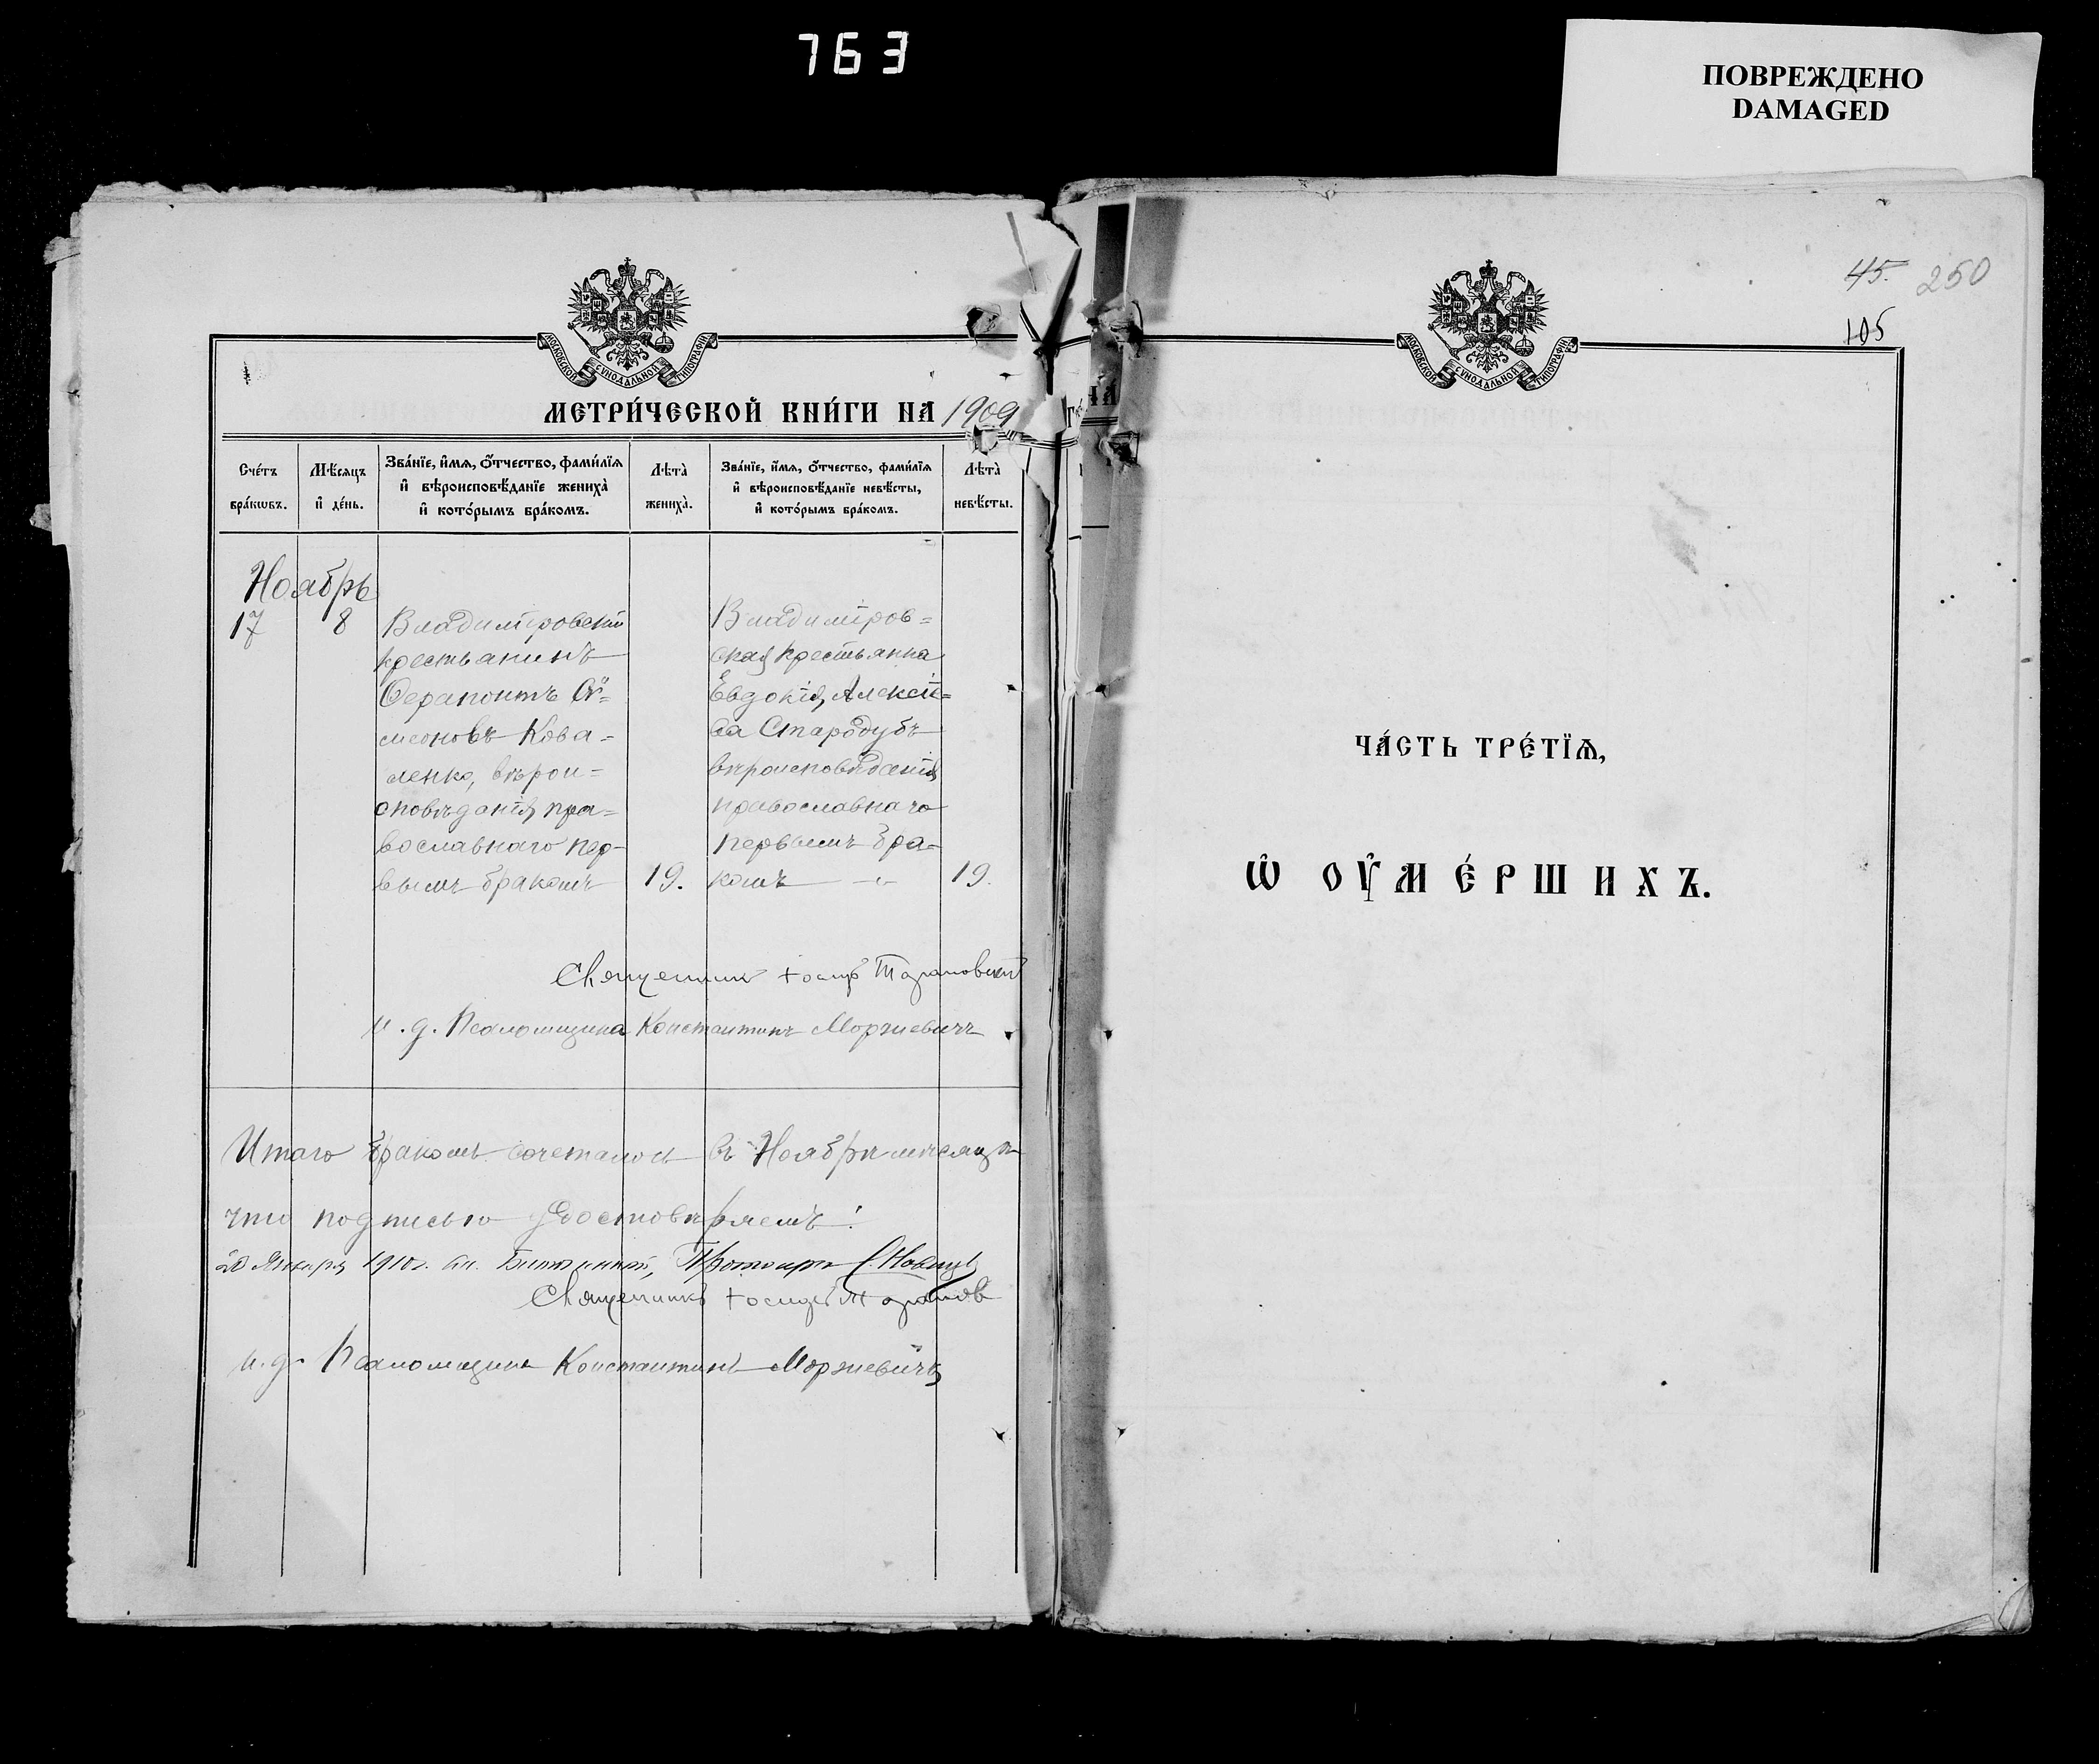 763
ПОВРЕЖДЕНО
DAMAGED
МОСКОВСКОЙ СѴНОДАЛЬНОЙ ТИПОГРАФІИ
МЕТРИ́ЧЕСКОЙ КНИ́ГИ НА 1909
Сче́тъ бра́кѡвъ.
Мѣ́сяцъ и҆ де́нь.
Зва́нїе, и҆́мѧ, ѻ҆́тчество, фами́лїѧ и҆ вѣроисповѣ́данїе жениха̀ и҆ кото́рымъ бра́комъ.
Лѣта̀ жениха̀.
Зва́нїе, и҆́мѧ, ѻ҆́тчество, фами́лїѧ и҆ вѣроисповѣ́данїе невѣ́сты, и҆ кото́рымъ бра́комъ.
Лѣта̀ невѣ́сты.
Ноябрь
17
8
Владимїровскій
крестьянинъ
Ѳерапонтъ Сѵ=
меоновъ Кова=
ленко, вѣрои=
сповѣданія пра=
вославнаго пер-
вымъ бракомъ
19.
Владимїров=
ская крестьянка
Евдокія Алексіе=
ва Стародубъ
вѣроисповѣданія
православнаго
первымъ бра=
комъ —"—
19.
Священникъ Іосифъ Тарановскій
и. д. Псаломщика Константинъ Моржевичъ
Итого бракомъ сочеталось въ Ноябрѣ мѣсяцѣ
что подписью удостовѣряемъ:
20 Января 1910 г. Бл. Протоіерей С. Новицкій
Священникъ Іосифъ Таранов
и. д. Псаломщика Константинъ Моржевичъ
45. 250
105
МОСКОВСКОЙ СѴНОДАЛЬНОЙ ТИПОГРАФІИ
ЧА́СТЬ ТРЕ́ТЇѦ,
Ѡ҆ ОУ҆МЕ́РШИХЪ.